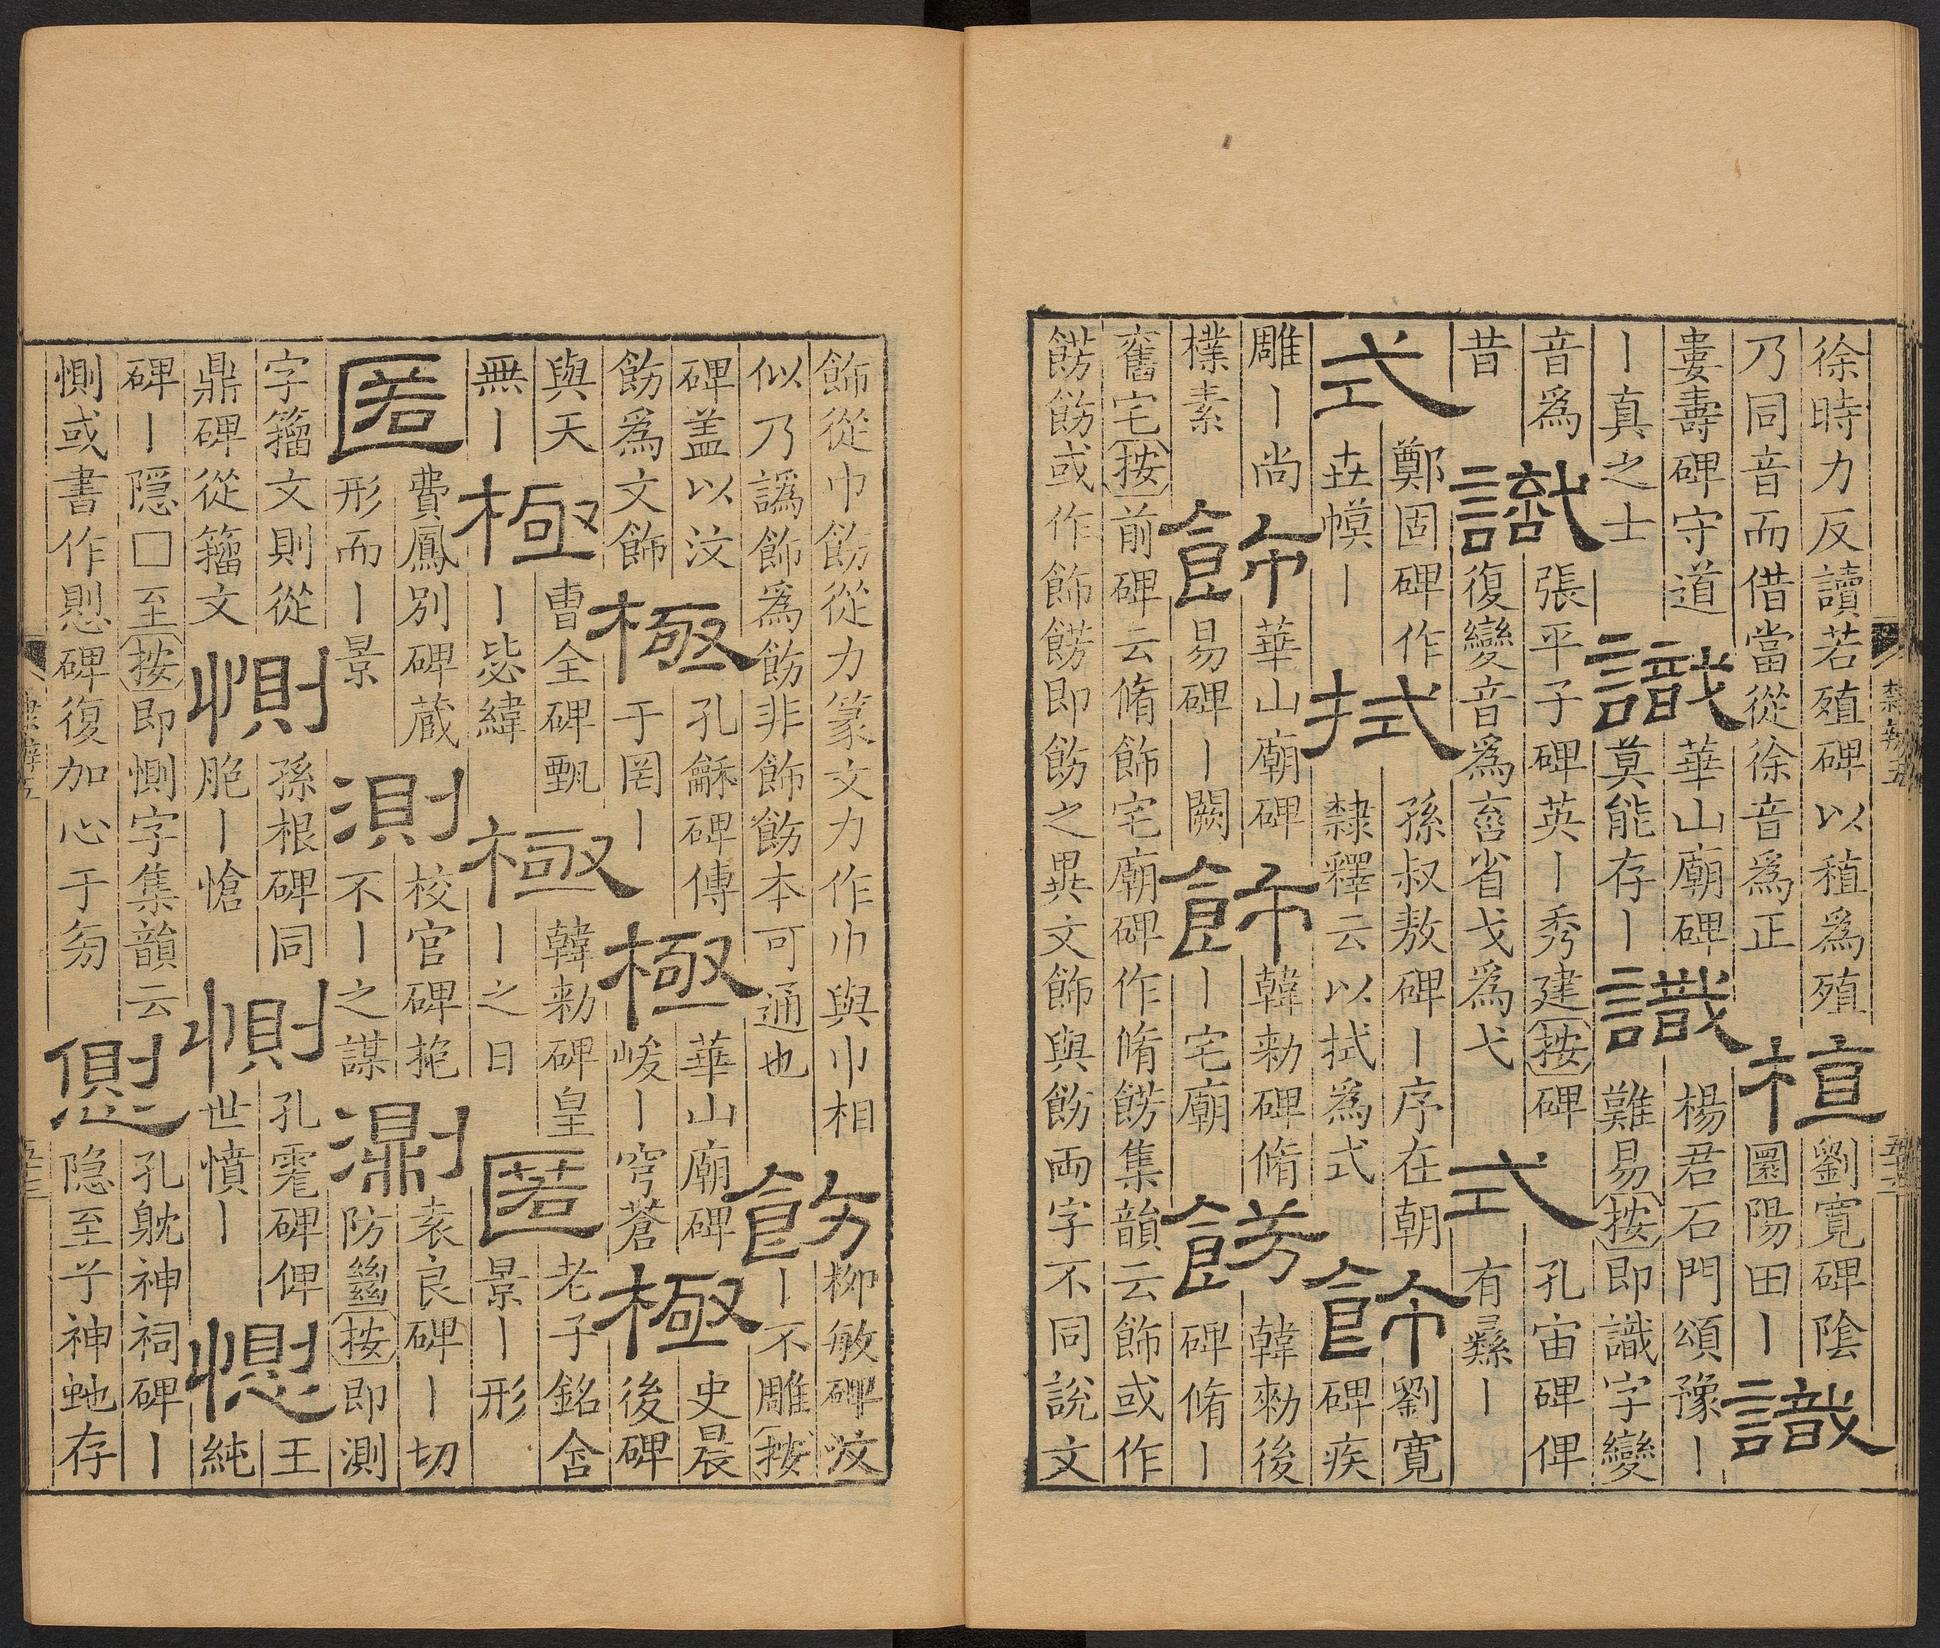 徐時力反讀若殖碑以稙爲殖
乃同音而借當從徐音爲正
植
劉寬碑陰
圉陽田丨
識
婁壽碑守道
丨真之士
識
華山廟碑
莫能存丨
識
楊君石門頌豫丨
難易按即識字變
音爲
昔
識
張平子碑英丨秀建按碑
復變音爲㖾省戈爲弋
式
孔宙碑俾
有彛丨
式
鄭固碑作
丗模丨
拭
孫叔敖碑丨序在朝
隸釋云以拭爲式
飾
劉寬
碑疾
雕丨尚
樸素
飾
華山廟碑
易碑丨闕
飾
韓勑碑脩
丨宅廟
餝
韓勑後
碑脩丨
舊宅按前碑云脩飾宅廟碑作脩餝集韻云飾或作
餝飭或作飾餝即飭之異文飾與飭兩字不同說文
隸辨五
五十三
飾從巾飭從力篆文力作巾與巾相
似乃譌飾爲飭非飾飭本可通也
飭
栁敏碑汶
丨不雕按
碑盖以汶
飭爲文飾
極
孔龢碑傳
于罔丨
極
華山廟碑
峻丨穹蒼
極
史晨
後碑
與天
無丨
極
曹全碑甄
丨毖緯
極
韓勑碑皇
丨之日
匿
老子銘含
景丨形
匿
費鳳別碑蔵
形而丨景
測
校官碑
不丨之謀
測
袁良碑丨切
防按即測
字籀文則從
鼎碑從籀文
惻
孫根碑同
脃丨愴
惻
孔雿碑俾
世憤丨
惻
王
純
碑丨隱□至按即惻字集韻云
惻或書作㥽碑復加心于匆
㥽
孔躭神祠碑丨
隐至兮神虵存